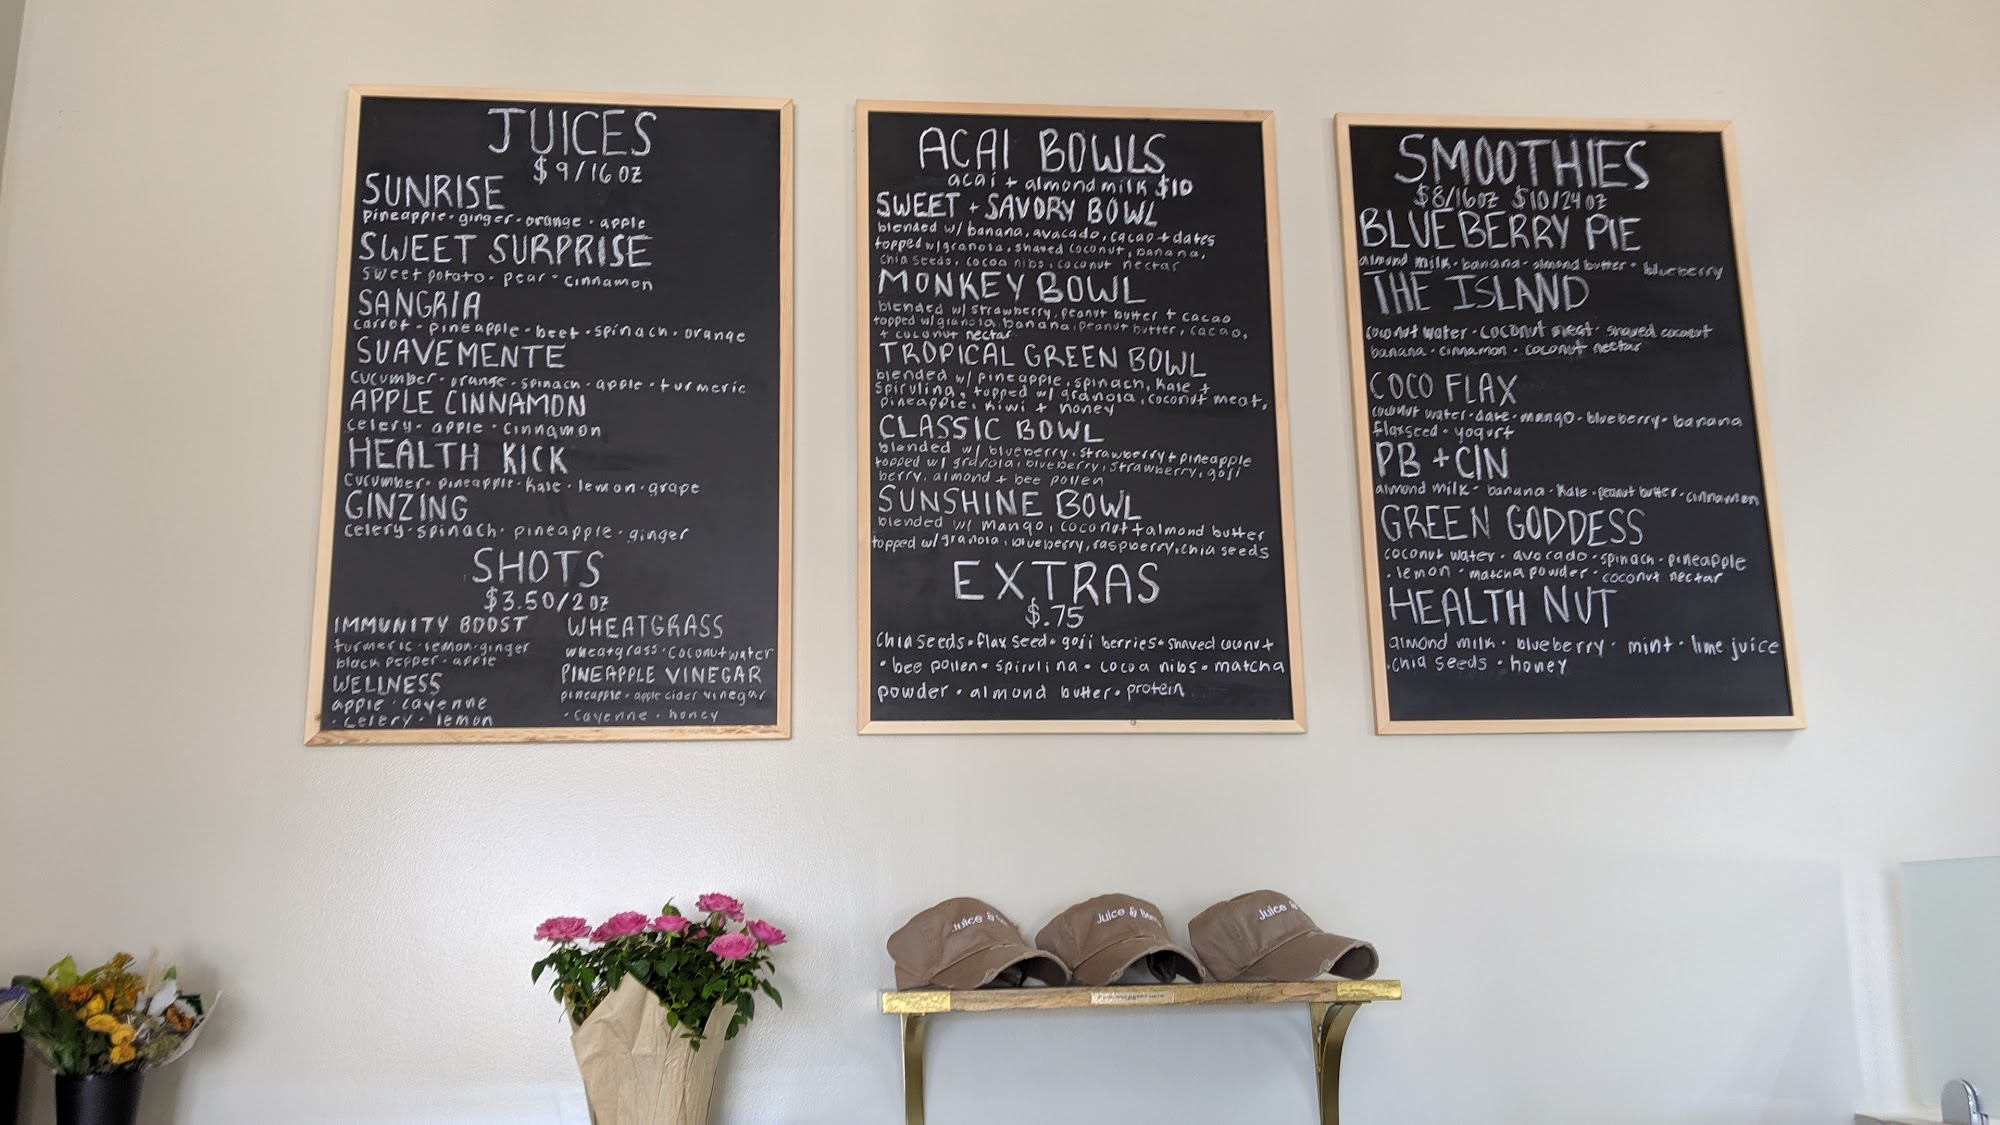 JUICES
$9/16 OZ
SUNRISE
pineapple · ginger · orange · apple
SWEET SURPRISE
sweet potato · pear · cinnamon
SANGRIA
carrot · pineapple · beet · spinach · orange
SUAVEMENTE
cucumber · orange · spinach · apple · turmeric
APPLE CINNAMON
celery · apple · cinnamon
HEALTH KICK
cucumber · pineapple · kale · lemon · grape
GINZING
celery · spinach · pineapple · ginger
SHOTS
$3.50/2 OZ
IMMUNITY BOOST
turmeric · lemon · ginger
black pepper · apple
WELLNESS
apple · cayenne
· celery · lemon
WHEATGRASS
wheatgrass · coconut water
PINEAPPLE VINEGAR
pineapple · apple cider vinegar
· cayenne · honey
ACAI BOWLS
acai + almond milk $10
SWEET + SAVORY BOWL
blended w/ banana, avacado, cacao + dates
topped w/ granola, shaved coconut, banana,
chia seeds, cocoa nibs, coconut nectar
MONKEY BOWL
blended w/ strawberry, peanut butter + cacao
topped w/ granola, banana, peanut butter, cacao,
+ coconut nectar
TROPICAL GREEN BOWL
blended w/ pineapple, spinach, kale +
spirulina, topped w/ granola, coconut meat,
pineapple, kiwi + honey
CLASSIC BOWL
blended w/ blueberry, strawberry + pineapple
topped w/ granola, blueberry, strawberry, goji
berry, almond + bee pollen
SUNSHINE BOWL
blended w/ mango, coconut + almond butter
topped w/ granola, blueberry, raspberry, chia seeds
EXTRAS
$.75
chia seeds · flax seed · goji berries · shaved coconut
· bee pollen · spirulina · cocoa nibs · matcha
powder · almond butter · protein
SMOOTHIES
$8/16OZ $10/24OZ
BLUEBERRY PIE
almond milk · banana · almond butter · blueberry
THE ISLAND
coconut water · coconut meat · shaved coconut
banana · cinnamon · coconut nectar
COCO FLAX
coconut water · date · mango · blueberry · banana
flaxseed · yogurt
PB + CIN
almond milk · banana · kale · peanut butter · cinnamon
GREEN GODDESS
coconut water · avocado · spinach · pineapple
· lemon · matcha powder · coconut nectar
HEALTH NUT
almond milk · blueberry · mint · lime juice
· chia seeds · honey
Juice &
Juice &
Juice &